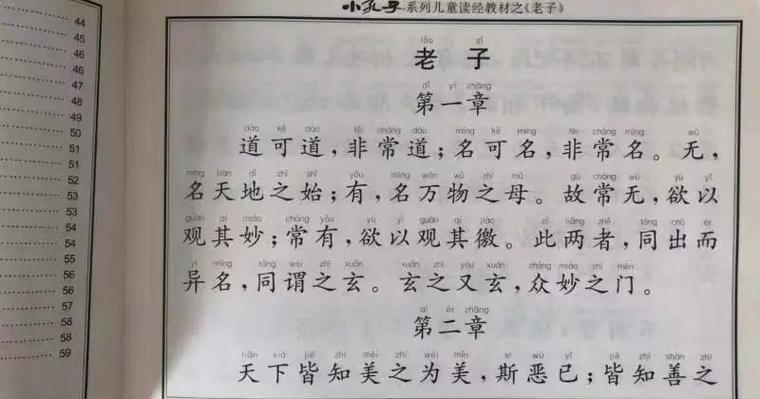 小孔子系列儿童读经教材之《老子》
44
45
46
46
47
48
48
49
50
51
52
53
53
54
54
55
56
57
58
58
59
lǎo zǐ
老子
dì yī zhāng
第一章
dào kě dào fēi cháng dào míng kě míng fēi cháng míng wú
道可道，非常道；名可名，非常名。无，
míng tiān dì zhī shǐ yǒu míng wàn wù zhī mǔ gù cháng wú yù yǐ
名天地之始；有，名万物之母。故常无，欲以
guān qí miào cháng yǒu yù yǐ guān qí jiào cǐ liǎng zhě tóng chū ér
观其妙；常有，欲以观其徼。此两者，同出而
yì míng tóng wèi zhī xuán xuán zhī yòu xuán zhòng miào zhī mén
异名，同谓之玄。玄之又玄，众妙之门。
dì èr zhāng
第二章
tiān xià jiē zhī měi zhī wéi měi sī è yǐ jiē zhī shàn zhī
天下皆知美之为美，斯恶已；皆知善之